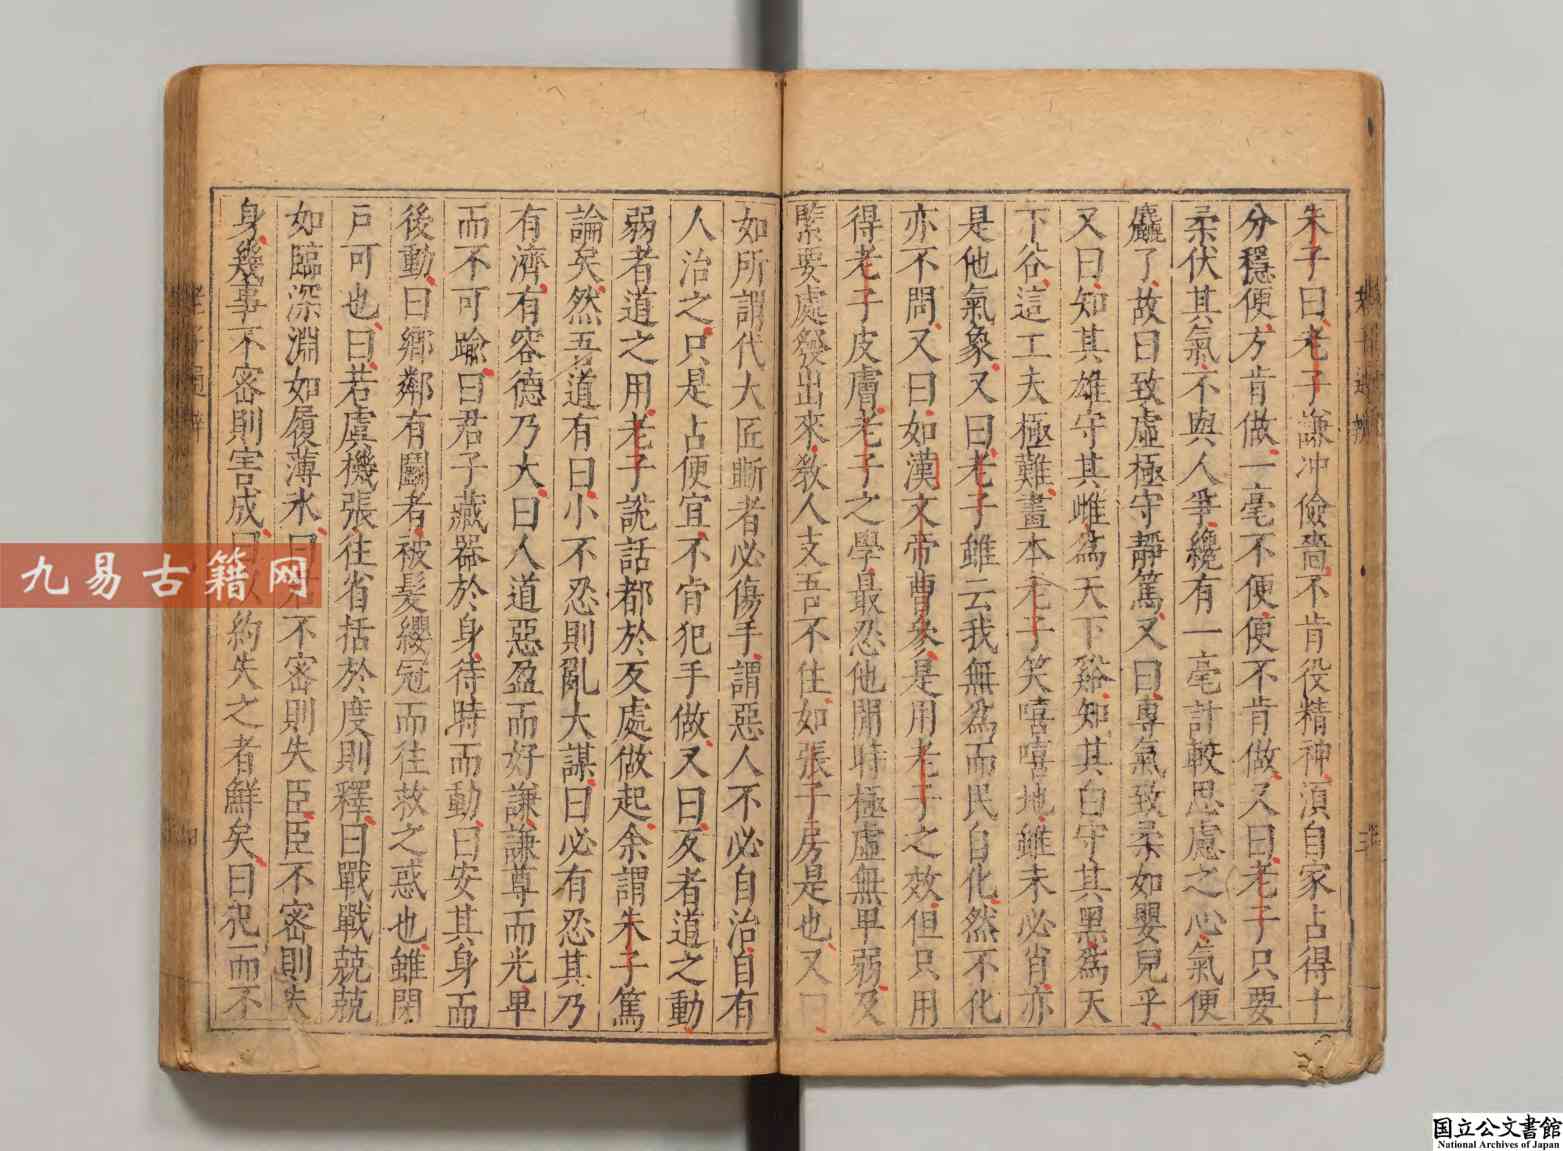 朱子曰老子謙冲儉嗇不肯役精神湏自家占得十
分穩便方肯做一毫不便便不肯做又曰老子只要
柔伏其氣不與人爭纔有一毫計較思慮之心氣便
麤了故曰致虛極守靜篤又曰專氣致柔如嬰兒乎
又曰知其雄守其雌為天下谿知其白守其黑為天
下谷這工夫極難畫本老子笑嘻嘻地雖未必肖亦
是他氣象又曰老子雖云我無為而民自化然不化
亦不問又曰如漢文帝曹參是用老子之效但只用
得老子皮膚老子之學最忍他閒時極虛無卑弱及
緊要處發出來教人支吾不住如張子房是也又曰
如所謂代大匠斲者必傷手謂惡人不必自治自有
人治之只是占便宜不肯犯手做又曰反者道之動
弱者道之用老子說話都於反處做起余謂朱子篤
論矣然吾道有曰小不忍則亂大謀曰必有忍其乃
有濟有容德乃大曰人道惡盈而好謙謙尊而光卑
而不可踰曰君子藏器於身待時而動曰安其身而
後動曰鄉鄰有鬭者被髮纓冠而往救之惑也雖閉
戶可也曰若虞機張往省括於度則釋曰戰戰兢兢
如臨深淵如履薄氷曰 不密則失臣臣不密則失
身幾事不密則害成曰以約失之者鮮矣曰祀而不
九易古籍网
国立公文書館
National Archives of Japan